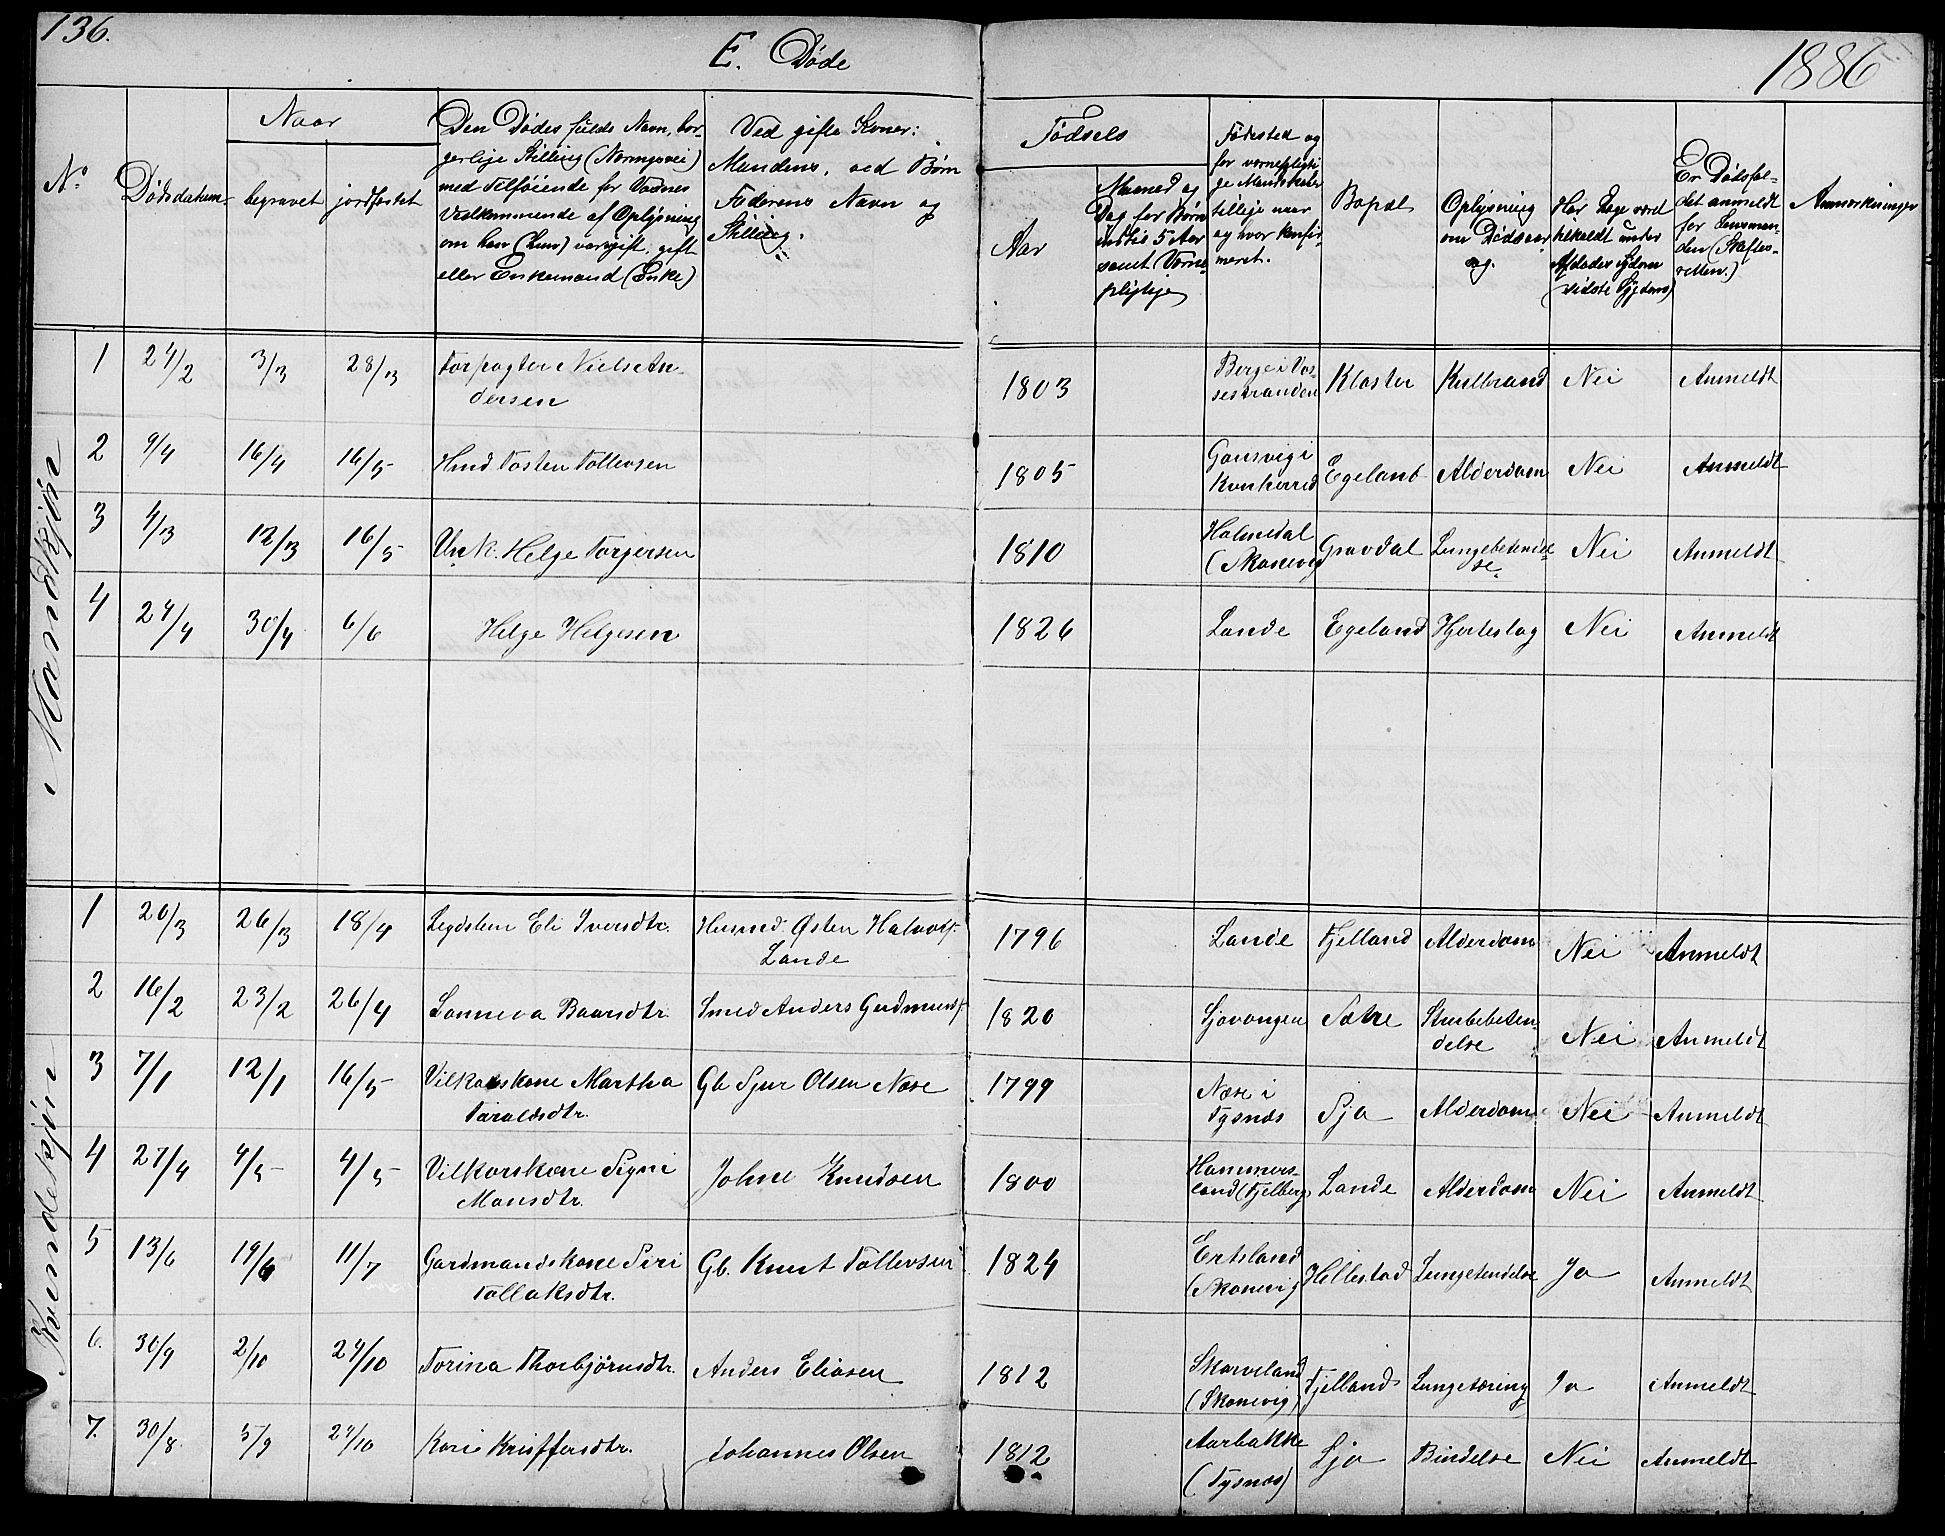 136.
E. Døde
1886
Nº
Dødsdatum
Naar
begravet
jordfæstet
Den Dødes fulde Navn, bor-
gerlige Stilling (Næringsvei)
med Tilføiende for Voxnes
Vedkommende af Oplysning
om han (hun) var ugift, gift
eller Enkemand (Enke)
Ved gifte Koner:
Mandens, ved Børn
Faderens Navn og
Stilling.
Fødsels
Aar
Maaned og
Dag for Børn
indtil 5 Aar
samt Værne-
pligtige
Fødested og
for værnepligti-
ge Mandskaber
tillige naar
og hvor konfir-
meret.
Bopæl
Oplysning
om Dødsaar-
sag.
Har Læge været
tilkaldt under
Afdødes Sygdom
(sidste Sygdom)
Er Dødsfal-
det anmeldt
for Lensman-
den (Skifte-
retten.)
Anmærkninger
Mandkjøn
1 24/2 3/3 28/3 Forpagter Niels An-
dersen 1803 Berge i Vos-
sestranden Kloster Kulbrand Nei Anmeldt
2 9/4 16/4 16/5 Hmd. Tosten Tollevsen 1805 Gansvig i
Kvinherred Egeland Alderdom Nei Anmeldt
3 4/3 12/3 16/5 Unk. Helge Torgersen 1810 Holmedal
(Skonevig Gravdal Lungebetendel-
se Nei Anmeldt
4 24/4 30/4 6/6 Helge Helgesen 1826 Lande Egeland Hjerteslag Nei Anmeldt
Kvindekjøn
1 20/3 26/3 18/4 Legdslem Eli Iversdtr. Husmd. Østen Halvors.
Lande 1796 Lande Fjelland Alderdom Nei Anmeldt
2 16/2 23/2 26/4 Sonneva Baarsdtr. Smed Anders Gudmunds. 1820 Sjovangen Sætre Strubebeten-
delse Nei Anmeldt
3 7/1 12/1 16/5 Vilkaarskone Martha
Taraldsdtr. Gb. Sjur Olsen Næse 1799 Næse i
Tysnæs Sjo Alderdom Nei Anmeldt
4 27/4 4/5 4/5 Vilkorskone Signi
Monsdtr. Johne Knudsen 1800 Hammers-
land (Fjelberg) Lande Alderdom Nei Anmeldt
5 13/6 19/6 11/7 Gardmandskone Siri
Tollaksdtr. Gb. Knut Tollevsen 1824 Ertsland
(Skonevig Hellestad Lungetendelse Ja Anmeldt
6. 30/9 2/10 24/10 Torina Thorbjørnsdtr. Anders Eliasen 1812 Skarveland
(Skonevig) Fjelland Lungetæring Ja Anmeldt
7. 30/8 5/9 24/10 Kari Kristffersdtr. Johannes Olsen 1812 Aarbakke
(Tysnæs) Sjo Bindelse Nei Anmeldt